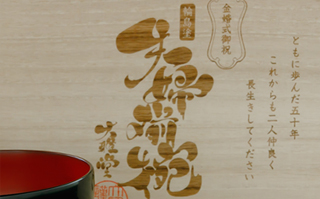 金婚式御祝
輪島塗
夫婦箸椀
ともに歩んだ五十年
これからも二人仲良く
長生きしてください